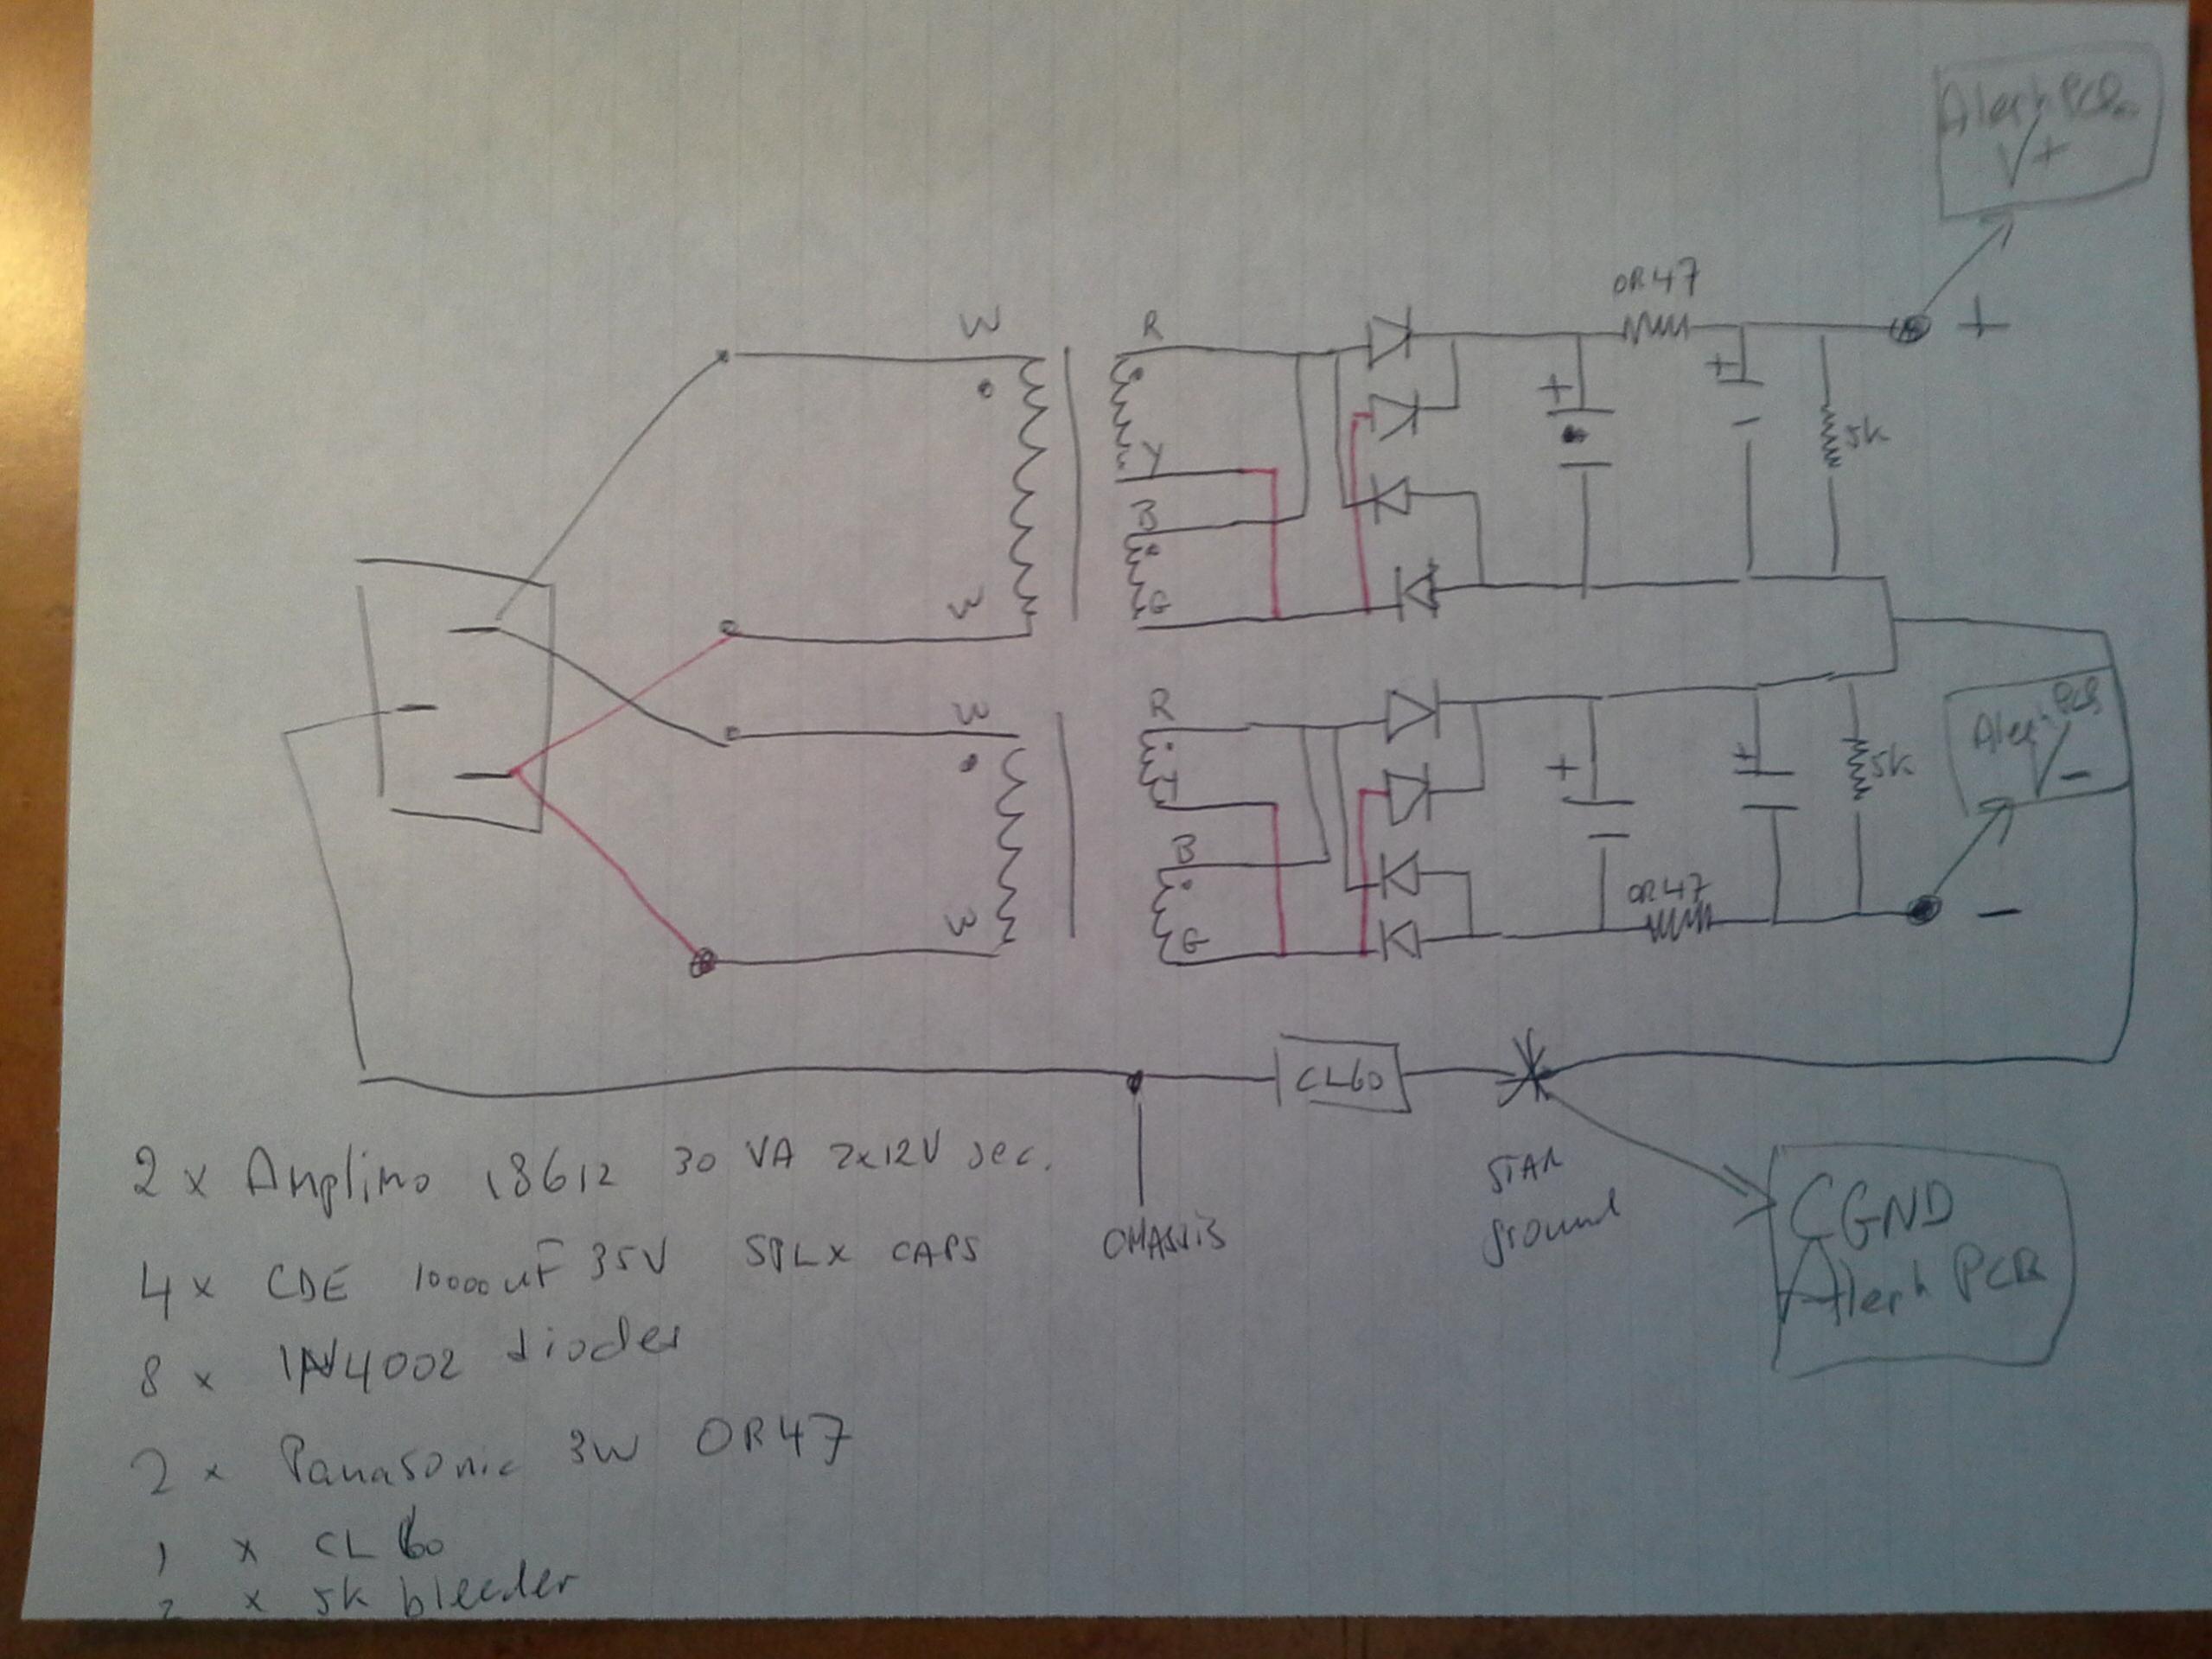 Aleph PCB
V+
0R47
W
R
+
+
+
5k
Y
B
W
G
R
W
Aleph PCB
V-
+
+
5k
Y
B
0R47
W
G
-
CL60
2 x Amplimo 18612 30 VA 2x12V sec.
STAR
ground
CGND
Aleph PCB
CHASSIS
4 x CDE 10000uF 35V SPLX CAPS
8 x 1N4002 diodes
2 x Panasonic 3W 0R47
1 x CL60
2 x 5k bleeder